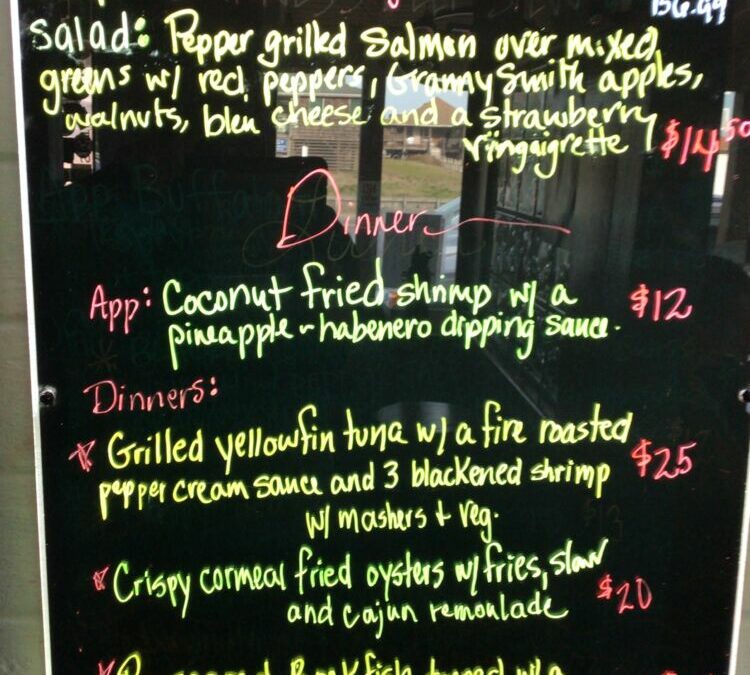 $6.99
salad: Pepper grilled Salmon over mixed
greens w/ red peppers, Granny Smith apples,
walnuts, bleu cheese and a strawberry
vingaigrette $14.50
Dinner
App: Coconut fried shrimp w/ a $12
pineapple-habenero dipping sauce.
Dinners:
Grilled yellowfin tuna w/ a fire roasted
pepper cream sauce and 3 blackened shrimp $25
w/ mashers + veg.
Crispy cornmeal fried oysters w/ fries, slaw
and cajun remoulade $20
Rockfish topped w/ a